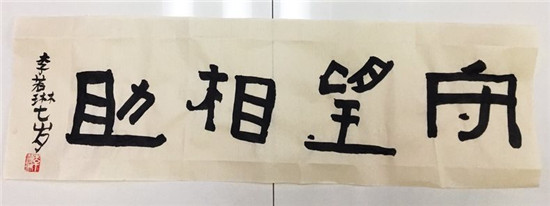 守望相助
李若琳七岁